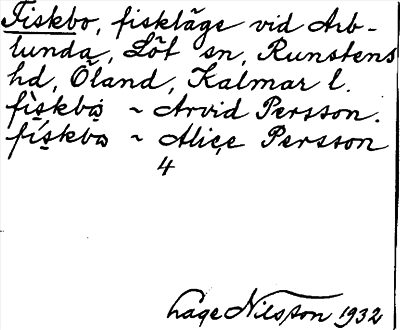 Fiskbo, fiskläge vid Arb-
lunda, Löt sn, Runstens
hd, Öland, Kalmar l.
fìskbo ~ Arvid Persson.
fískbo ~ Alice Persson
4
Lage Nilsson 1932